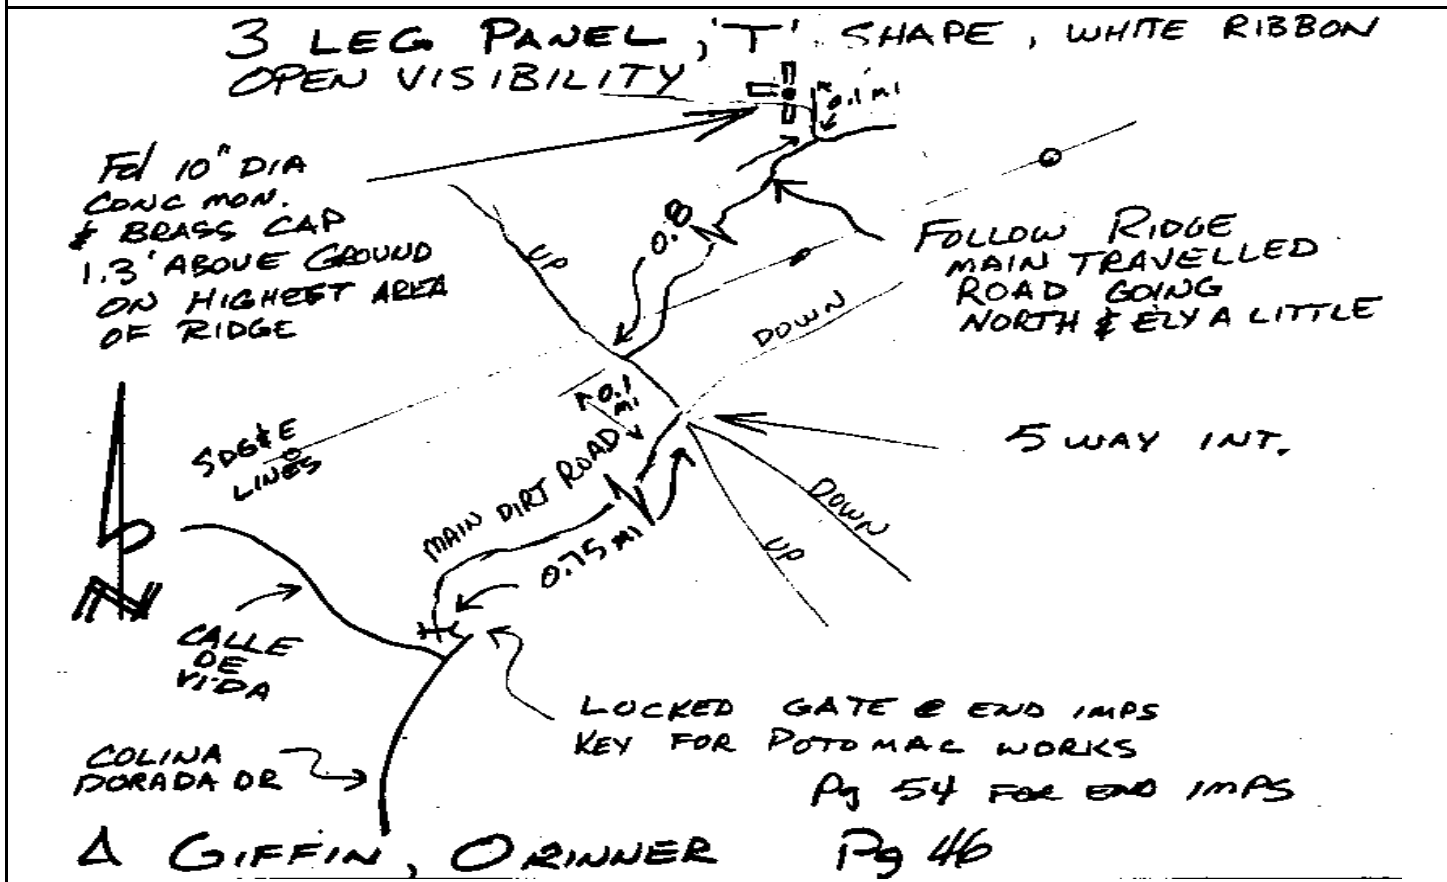 3 LEG PANEL, 'T' SHAPE, WHITE RIBBON
OPEN VISIBILITY
0.1 MI
Fd 10" DIA
CONC MON.
& BRASS CAP
1.3' ABOVE GROUND
ON HIGHEST AREA
OF RIDGE
UP
0.8
FOLLOW RIDGE
MAIN TRAVELLED
ROAD GOING
NORTH & ELY A LITTLE
DOWN
0.1
MI
SDG&E
LINES
5 WAY INT.
MAIN DIRT ROAD
DOWN
UP
0.75 MI
N
CALLE
DE
VIDA
LOCKED GATE @ END IMPS
KEY FOR POTOMAC WORKS
Pg 54 FOR END IMPS
COLINA
DORADA DR
Δ GIFFIN, O RINNER Pg 46